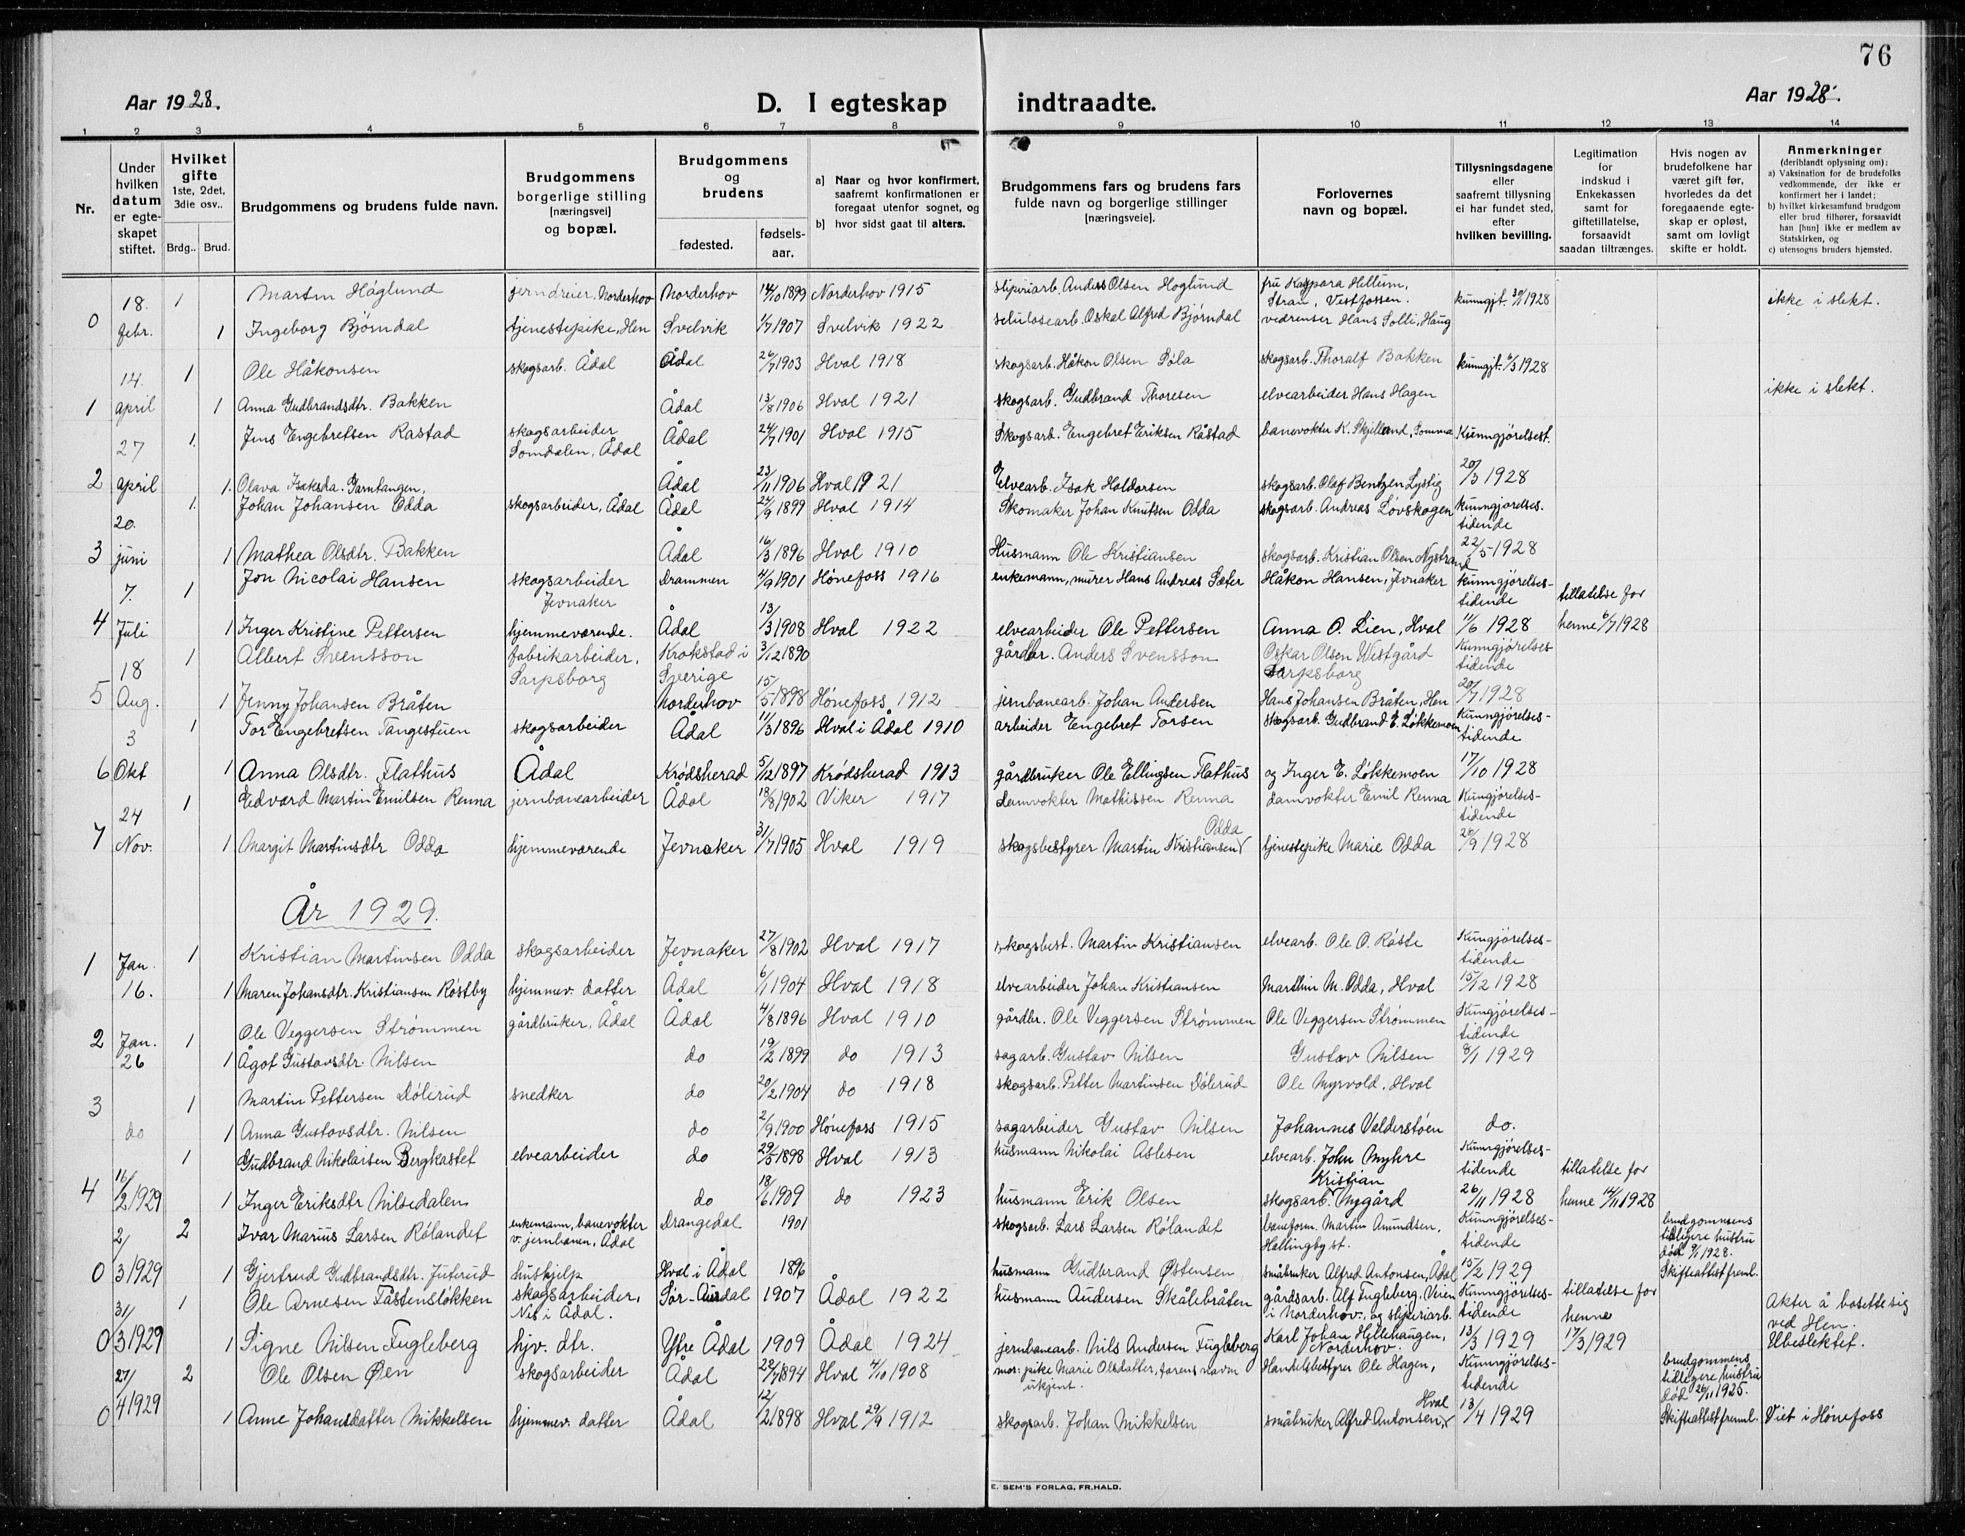 76
Aar 1928.
D. I egteskap indtraadte.
Aar 1928.
1 2 3 4 5 6 7 8 9 10 11 12 13 14
Nr.
Under hvilken datum er egte- skapet stiftet.
Hvilket gifte 1ste, 2det, 3die osv..
Brdg.. Brud.
Brudgommens og brudens fulde navn.
Brudgommens borgerlige stilling [næringsvei] og bopæl.
Brudgommens og brudens
fødested.
fødsels- aar.
a] Naar og hvor konfirmert, saafremt konfirmationen er foregaat utenfor sognet, og
b] hvor sidst gaat til alters.
Brudgommens fars og brudens fars fulde navn og borgerlige stillinger [næringsveie].
Forlovernes navn og bopæl.
Tillysningsdagene eller saafremt tillysning ei har fundet sted, efter hvilken bevilling.
Legitimation for indskud i Enkekassen samt for giftetillatelse, forsaavidt saadan tiltrænges.
Hvis nogen av brudefolkene har været gift før, hvorledes da det foregaaende egte- skap er opløst, samt om lovligt skifte er holdt.
Anmerkninger (deriblandt oplysning om):
a) Vaksination for de brudefolks vedkommende, der ikke er konfirmert her i landet;
b) hvilket kirkesamfund brudgom eller brud tilhører, forsaavidt han [hun] ikke er medlem av Statskirken, og
c) utensogns bruders hjemsted.
0 18. febr. 1 Martin Höglund jerndreier, Norderhov Norderhov 14/10 1899 Norderhov 1915 slipriarb. Anders Olsen Hoglund fru Kaspara Hellum, Stran, Vestfossen. kunngjt. 30/1 1928 ikke i slekt.
1 Ingeborg Bjørndal tjenestepike, Hen Svelvik 1/7 1907 Svelvik 1922 celulosearb. Oskal Alfred Bjørndal vedrenser Hans Solli, Haug
1 14. april 1 Ole Håkonsen skogsarb. Ådal Ådal 26/7 1903 Hval 1918 skogsarb. Håkon Olsen Søla skogsarb. Thoralf Bakken kunngjt. 6/3 1928
1 Anna Gudbrandsdtr. Bakken Ådal 13/8 1906 Hval 1921 skogsarb. Gudbrand Thoresen elvearbeider Hans Hagen ikke i slekt.
2 27 april 1 Jens Engebretsen Rastad skogsarbeider Somdalen, Ådal Ådal 24/7 1901 Hval 1915 Skogsarb. Engebret Eriksen Råstad banevokter K. Skjelland, Somma Kunngjörelsest.
1 Olava Isaksda. Garntangen, Ådal 23/11 1906 Hval 1921 Elvearb. Isak Haldorsen skogsarb. Olaf Bentzen Lystig 20/3 1928
3 20. juni 1 Johan Johansen Odda skogsarbeider, Ådal Ådal 24/9 1899 Hval 1914 Skomaker Johan Knutsen Odda skogsarb. Andreas Lövskogen kunngjörelses. tidende
1 Mathea Olsdtr. Bakken Ådal 16/3 1896 Hval 1910 Husmann Ole Kristiansen skogsarb. Kristian Olsen Nystrand 22/5 1928
4 7. Juli 1 Jon Nicolai Hansen skogsarbeider Jevnaker Drammen 4/9 1901 Hønefoss 1916 enkemann, murer Hans Andreas Sæter Håkon Hansen, Jevnaker kunngjörelses- tidende tillatelse for
1 Inger Kristine Pettersen hjemmeværende. Ådal 13/3 1908 Hval 1922 elvearbeider Ole Pettersen Anna O. Lien, Hval 11/6 1928 henne 6/7 1928
5 18 Aug. 1 Albert Svensson fabrikarbeider, Sarpsborg Krokstad i Sverige 3/12 1890 gårdbr. Anders Svensson Oskar Olsen Westgård Sarpsborg Kunngjörelses- tidende
1 Jenny Johansen Bråten Norderhov 15/5 1898 Hønefoss 1912 jernbanearb. Johan Andersen Hans Johansen Bråten, Hen 20/7 1928
6 3 Okt 1 Tor Engebretsen Tangestuen skogsarbeider Ådal 11/3 1896 Hval i Ådal 1910 arbeider Engebret Torsen skogsarb. Gudbrand E. Løkkemoen Kunngjørelses- tidende
1 Anna Olsdtr. Flathus Ådal Krødsherad 5/12 1897 Krødsherad 1913 gårdbruker Ole Ellingsen Flathus og Inger E. Løkkemoen 17/10 1928
7 24 Nov. 1 Edvard Martin Emilsen Renna jernbanearbeider Ådal 18/8 1902 Viker 1917 Damvokter Mathissen Renna damvokter Emil Renna Kungjørelses- tidende
1 Margit Martinsdtr Odda hjemmeværende Jevnaker 31/7 1905 Hval 1919 skogsbestyrer Martin Kristiansen Odda tjenestepike Marie Odda 20/9 1928
År 1929.
1 Jan. 16. 1 Kristian Martinsen Odda skogsarbeider Jevnaker 27/8 1902 Hval 1917 skogsbest. Martin Kristiansen elvearb. Ole O. Røste Kungjørelses- tidende
1 Maren Johansdtr. Kristiansen Røstby hjemmev. datter Ådal 6/1 1904 Hval 1918 elvearbeider Johan Kristiansen Marthin M. Odda, Hval 15/12 1928
2 Jan. 26 1 Ole Veggersen Strømmen gårdbruker, Ådal Ådal 4/8 1896 Hval 1910 gårdbr. Ole Veggersen Strømmen Ole Veggersen Strømmen Kungjørelses- tidende
1 Ågot Gustavsdtr. Nilsen do 19/2 1899 do 1913 sagarb. Gustav Nilsen Gustav Nilsen 8/1 1929
3 do 1 Martin Pettersen Dølerud snedker do 20/2 1904 do 1918 skogsarb. Petter Martinsen Dølerud Ole Myrvold, Hval
1 Anna Gustavsdtr. Nilsen do 2/9 1900 Hønefoss 1915 sagarbeider Gustav Nilsen Johannes Valderstøen do.
4 16/2 1929 1 Gudbrand Nikolaisen Bergkastet elvearbeider do 29/5 1898 Hval 1913 husmann Nikolai Aslesen elvearb. John Myhre Kunngjørelses- tidende tillatelse for
1 Inger Eriksdtr Nilsedalen do 18/6 1909 do 1923 husmann Erik Olsen skogsarb. Kristian Nygård 26/11 1928 henne 14/11 1928
0 2/3 1929 2 Ivar Marius Larsen Rölandet enkemann, banevokter v. jernbanen, Ådal Drangedal 1901 skogsarb. Lars Larsen Rölandet baneform. Martin Amundsen, Hallingby st. Kunngjørelses- tidende brudgommens tidligere hustru död 9/1 1928. Skifteattest freml.
1 Gjertrud Gudbrandsdtr. Juterud hushjelp Hval i Ådal 1896 husmann Gudbrand Østensen småbruker Alfred Antonsen, Ådal 15/2 1929
0 31/3 1929 1 Ole Arnesen Tåstensløkken skogsarbeider, Nes i Ådal. Sør-Aurdal 1907 Ådal 1922 husmann Andersen Skålebråten gårdsarb. Alf Fugleberg, Veien i Norderhov, og slipriarb. Kunngjørelses- tidende tillatelse for henne Akter å bosette sig ved Hen.
1 Signe Nilsen Fugleberg hjv. dtr. Ytre Ådal 1909 Ådal 1924 jernbanearb. Nils Andersen Fugleberg Karl Johan Hellehaugen, Norderhov. 13/3 1929 17/3 1929 Ubeslektet.
0 27/4 1929 2 Ole Olsen Øen skogsarbeider Ådal 28/7 1894 Hval 4/10 1908 mor: pike Marie Olsdatter, farens navn ukjent. Handelsbestyrer Ole Hagen, Kunngjørelses- tidende brudgommens tidligere hustru död 26/11 1925.
1 Anne Johansdatter Mikkelsen hjemmev. datter Ådal 12/2 1898 Hval 29/9 1912 skogsarb. Johan Mikkelsen småbruker Alfred Antonsen, Hval 13/4 1929 Skifteattest freml. Viet i Hønefoss
E. SEM'S FORLAG, FR.HALD.